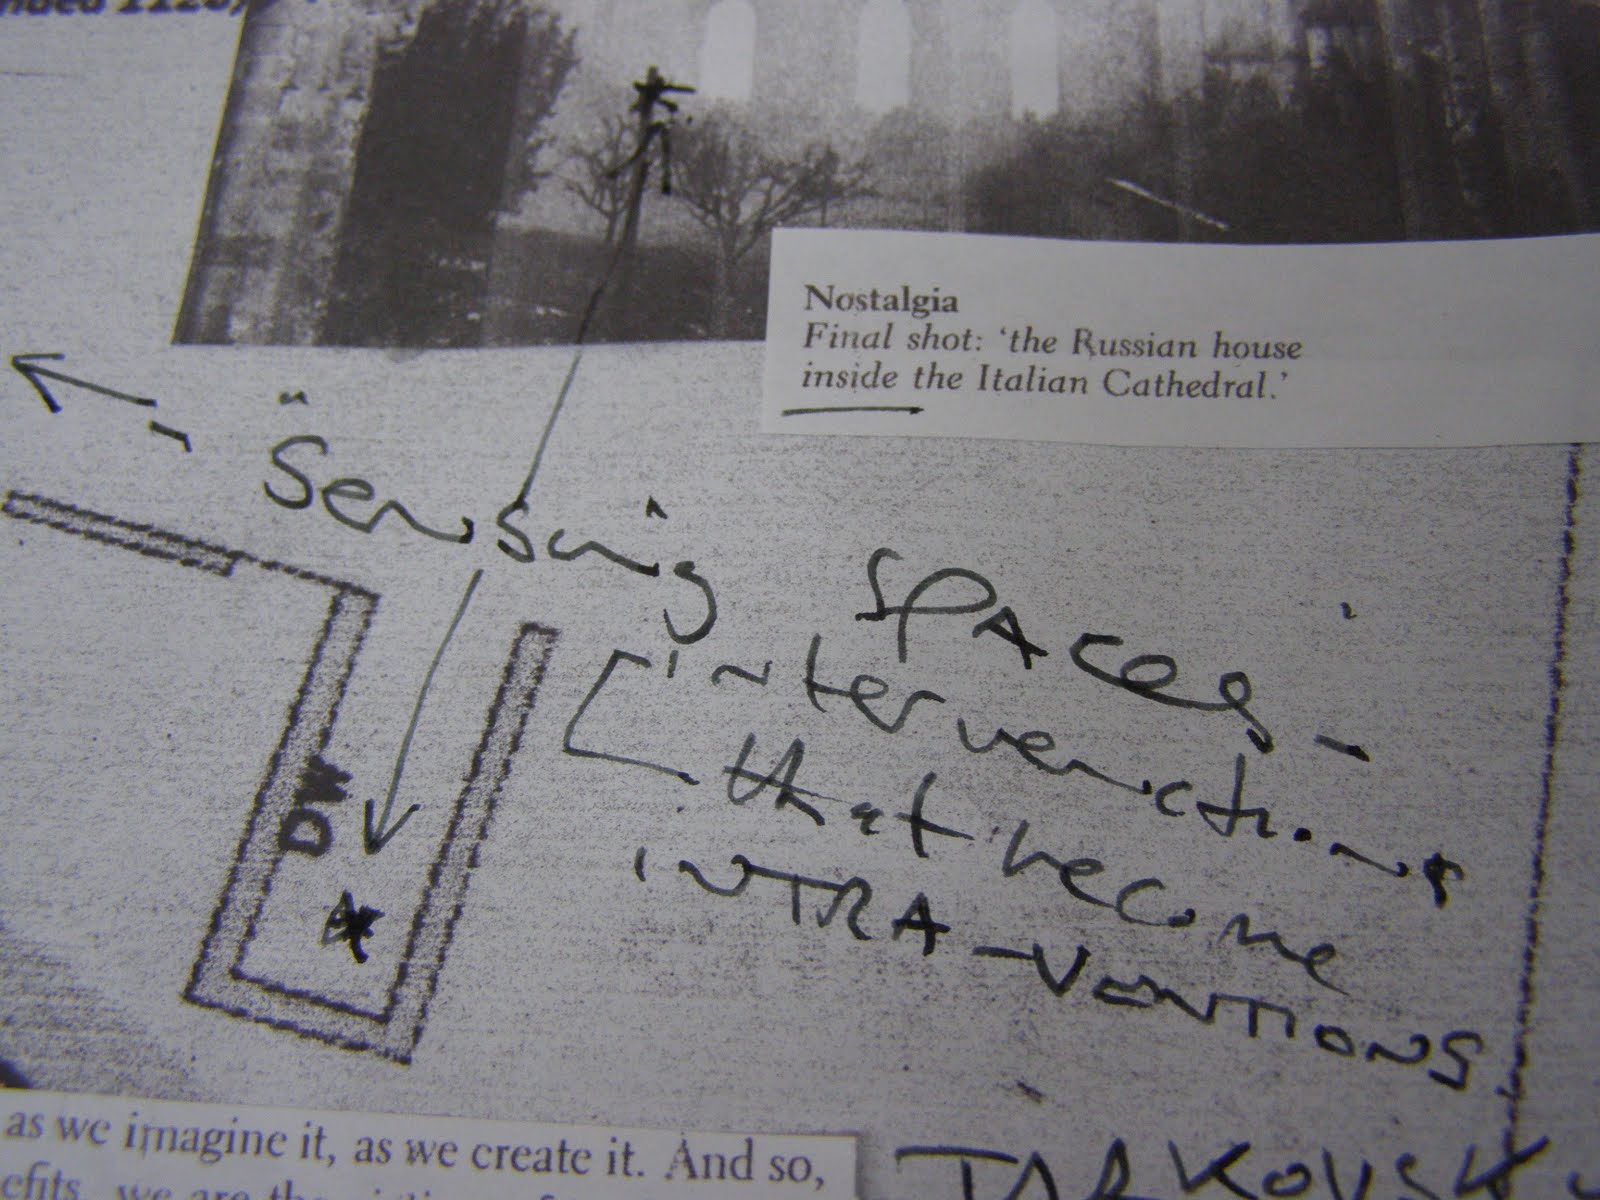 Nostalgia
Final shot: 'the Russian house
inside the Italian Cathedral.'
"Sensing SPACes -
interventions
that become
inTRA-VeNTIONS
DW
as we imagine it, as we create it. And so,
we are the
TARKOVSKY